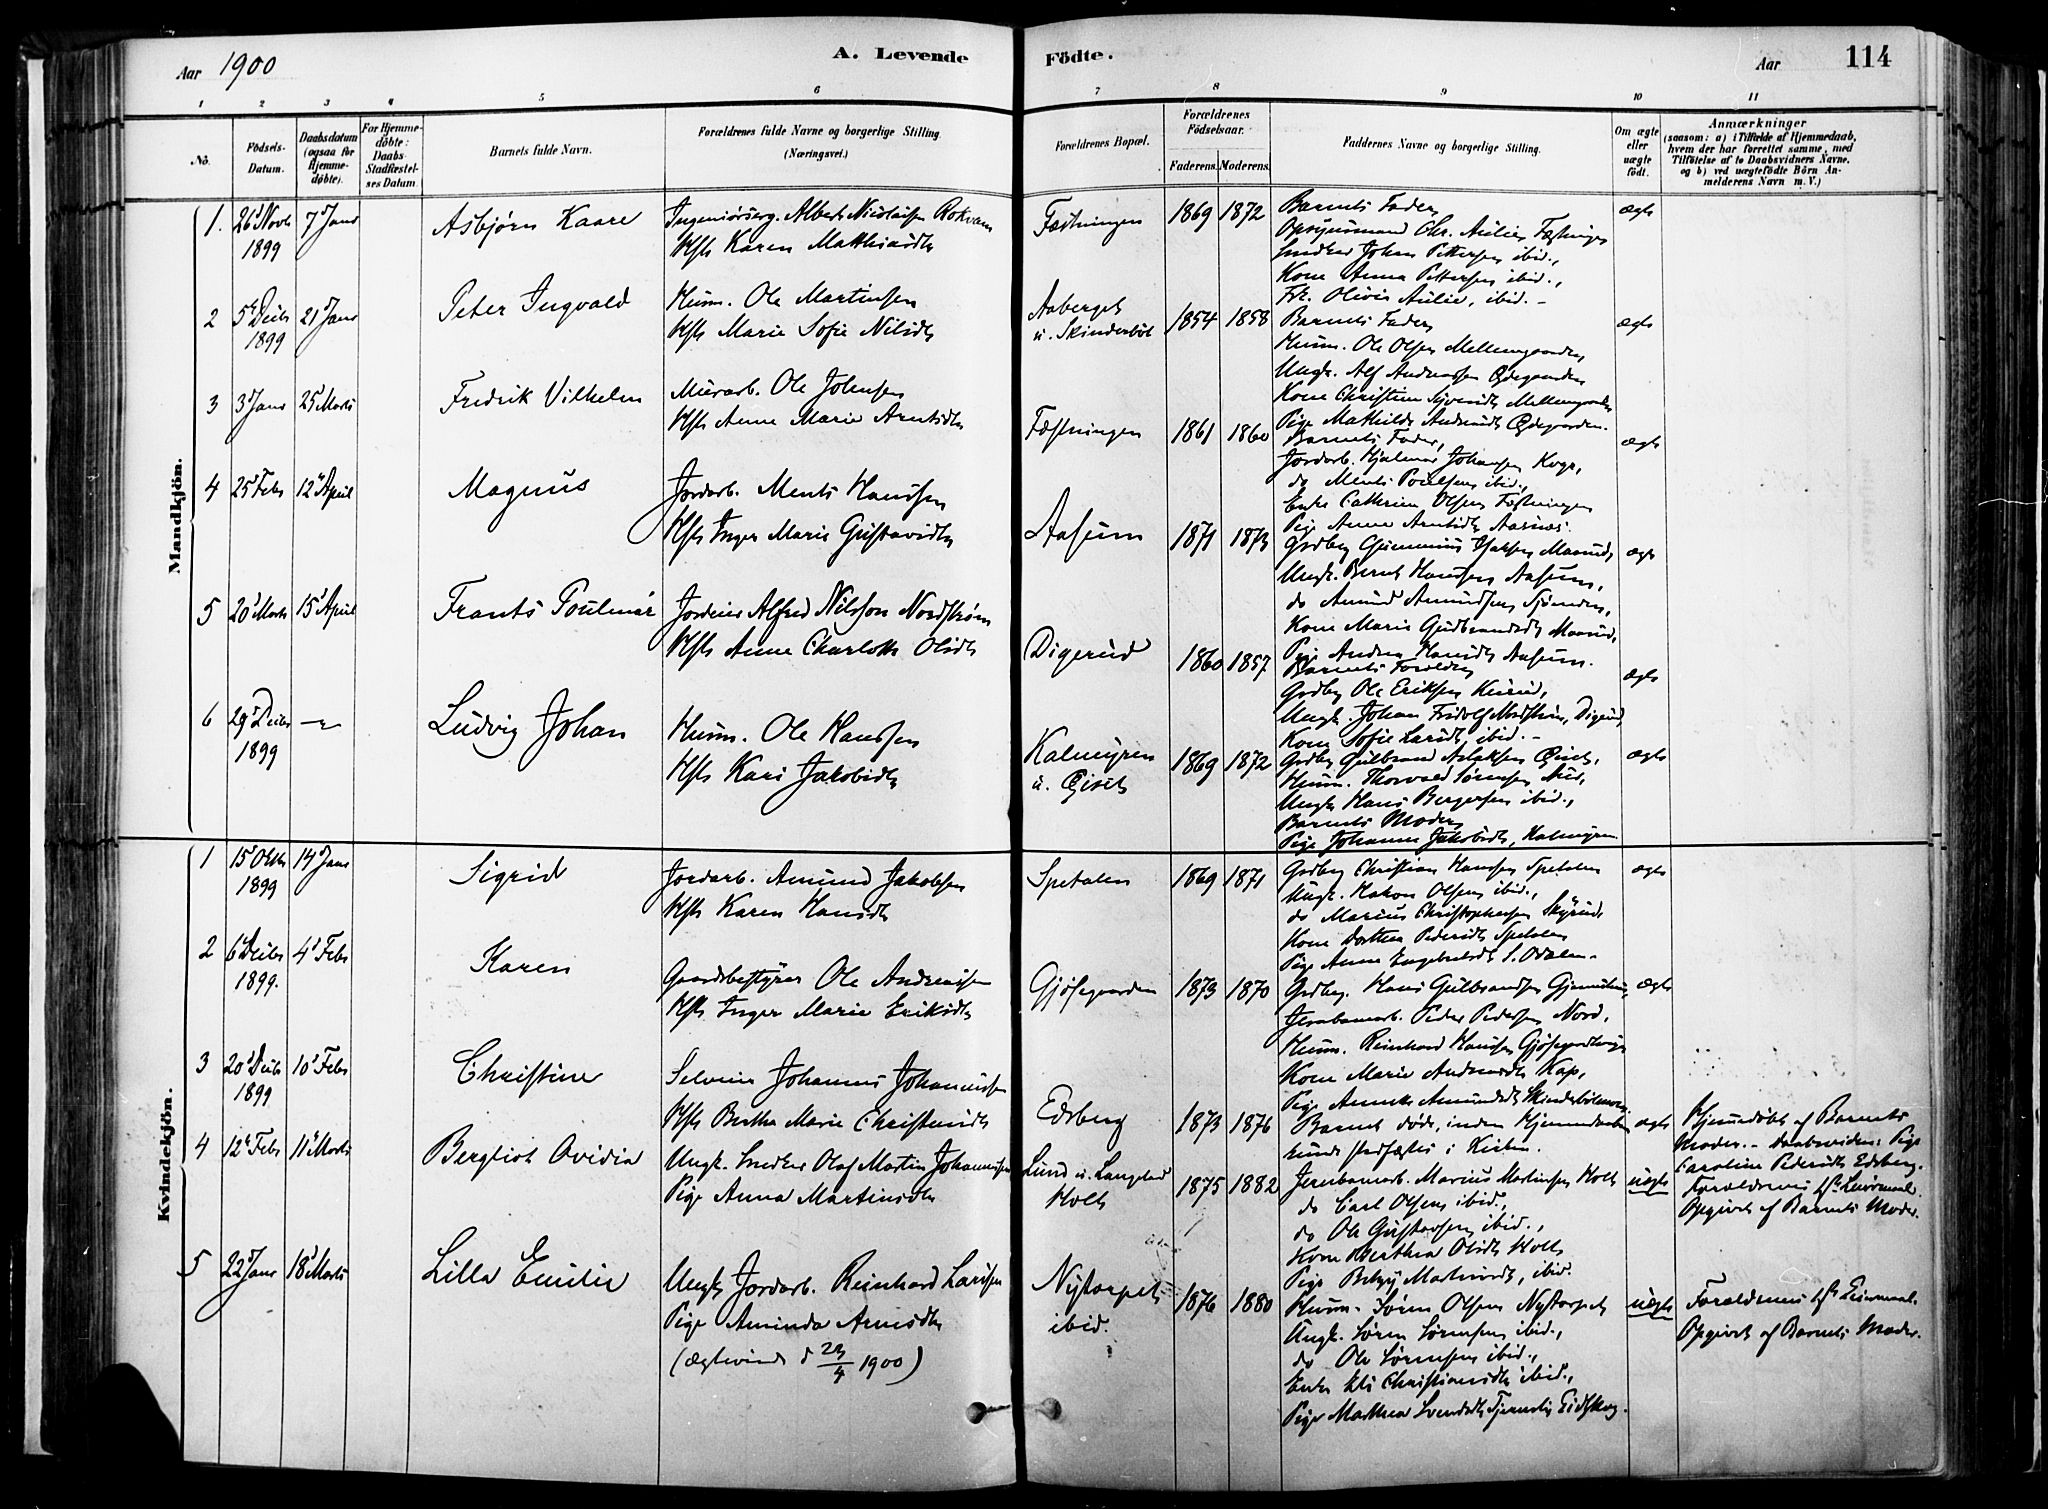 Aar 1900
A. Levende
Födte.
Aar
114
1 2 3 4 5 6 7 8 9 10 11
No.
Födsels-
Datum.
Daabsdatum
(ogsaa for
Hjemme-
døbte).
For Hjemme-
døbte:
Daabs-
Stadfæstel-
ses Datum.
Barnets fulde Navn.
Forældrenes fulde Navne og borgerlige Stilling.
(Næringsvei.)
Forældrenes Bopæl.
Forældrenes
Födselsaar.
Faderens. Moderens.
Faddernes Navne og borgerlige Stilling.
Om ægte
eller
uægte
født.
Anmærkninger
(saasom: a) i Tilfælde af Hjemmedaab,
hvem der har forrettet samme, med
Tilföielse af to Daabsvidners Navne,
og b) ved uægtefödte Börn An-
melderens Navn m. V.)
Mandkjön.
1. 26 Novb 1899
7 Janr
Asbjørn Kaare
Albert Nicolaisen Rokvam
Hst Karen Matthiasdtr
Fæstningen
1869 1872
Barnets Fader,
Opsynsmand Chr. Aulie, Fæstningen
Snedker Johan Pettersen ibid.,
Kone Anna Pettersen ibid.,
Frk. Olivia Aulie, ibid. -
ægte
2 5 Decbr 1899
21 Janr
Peter Ingvald
Husm. Ole Martinsen
Hst Marie Sofie Nilsdtr
Aaberget
u. Skinderböl
1854 1858
Barnets Fader,
Husm. Ole Olsen Mellemgaarden
Ungk. Alf Andreassen Ødegaarden
Kone Christine Mellemgaarden
Pige Mathilde Ødegaarden.
ægte
3 3 Janr
25 Marts
Fredrik Vilhelm
Murarb. Ole Johnsen
Hst Anne Marie Arntsdtr
Fæstningen
1861 1860
Barnets Fader,
Jordarb. Hjalmar Johansen
do Ments Poulsen ibid.,
Enke Cathrine Olsen Fæstningen
Pige Anne Arntsdtr Aasnes.
ægte
4 25 Febr
12 April
Magnus
Jordarb. Ments Hansen
Hst Inger Marie Gustavsdtr
Aasum
1871 1873
Bernt Hansen Aasum,
do Amund Amundsen
Kone Marie Gudbrandsdtr
Pige Andrea Hansdtr Aasum.
ægte
5 20 Marts
15 April
Frants Poulinar
Jordeier Alfred Nilsson Nordstrøm
Hst Anne Charlotte Olsdtr
Digerud
1860 1857
Barnets Forældre
Grdbr Ole Eriksen
Ungk. Johan Fridolf Nordstrøm, Digerud,
Kone Sofie Larsdtr, ibid. -
ægte
6 29 Decbr 1899
Ludvig Johan
Husm. Ole Hanssen
Hst Kari Jakobsdtr
Kalmyren
1869 1872
Grdbr Gulbrand Aslaksen
Husm. Thorvald Sørensen
Ungk Hans Bergersen ibid.,
Barnets Moder,
Pige Johanne Jakobsdtr, Kalmyren
ægte
Kvindekjön.
1 15 Oktbr 1899
14 Janr
Sigrid
Jordarb. Amund Jakobsen
Hst Karen Hansdtr
Spetalen
1869 1871
Grdbr Christian Hansen Spetalen
Ungk. Hakon Olsen ibid.,
do Marius Christophersen
Kone Dorthea Pedersdtr Spetalen
Pige Anne Engebretsdtr S. Odalen.
ægte
2 6 Decbr 1899.
4 Febr
Karen
Gaardsbestyrer Ole Andreassen
Hst Inger Marie Eriksdtr
Gjøsegaarden
1873 1870
Grdbr. Hans Gulbrandsen
Jernbanearb. Peder Pedersen Nord,
Husm. Reinhard Hansen
Kone Marie Andreasdtr Kap,
Pige Amundsdtr
ægte
3 20 Decbr 1899
10 Febr
Christine
Selveier Johannes Johannessen
Hst Berthe Marie Christiansdtr
Edsberg
1873 1876
Barnet døde, inden Hjemmedaaben
kunde stadfæstes i Kirken.
ægte
Hjemmedøbt af Barnets
Moder. - Daabsvidne: Pige
Caroline Pedersdtr Edsberg.
4 12 Febr
11 Marts
Bergliot Ovidia
Ungk. Snedker Olaf Martin Johannessen
Pige Anna Martinsdtr
Lund u. Langeland
Holt
1875 1882
Jernbanearb. Marius Martinsen Holt
do Carl Olsen ibid.,
do Ole Gustavsen ibid.,
Kone Berthea Olsdtr Holt
Pige Betzy Martinsdtr, ibid.
uægte
Forældrenes 1ste Leiermaal.
Opgivet af Barnets Moder.
5 22 Janr
18 Marts
Lilla Emilie
Ungk Jordarb. Reinhard Larsen
Pige Aminda Arnesdtr
(Ægteviede d 23/4 1900)
Nystorpet
ibid.
1876 1880
Husm. Søren Olsen Nystorpet
Ungk. Søren Sørensen ibid.,
do Ole Sørensen ibid.,
Enke Eli Christiansdtr ibid.,
Pige Marthea Svendsdtr Eidskog.
uægte
Forældrenes 1ste Leiermaal.
Opgivet af Barnets Moder.